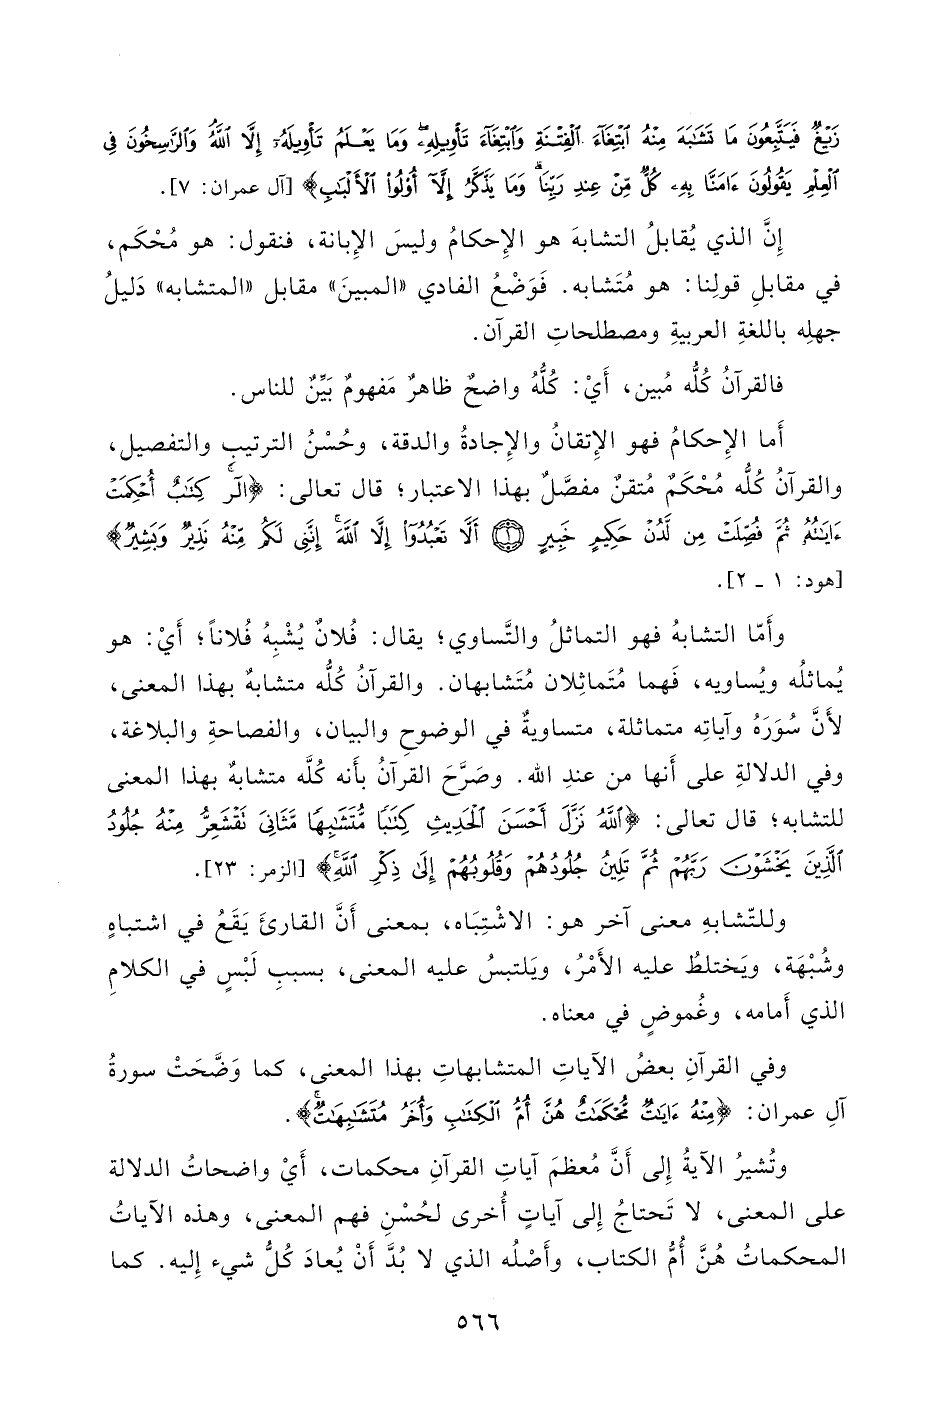 زَيْغٌ فَيَتَّبِعُونَ مَا تَشَابَهَ مِنْهُ ابْتِغَاءَ الْفِتْنَةِ وَابْتِغَاءَ تَأْوِيلِهِ وَمَا يَعْلَمُ تَأْوِيلَهُ إِلَّا اللَّهُ وَالرَّاسِخُونَ فِي
الْعِلْمِ يَقُولُونَ ءَامَنَّا بِهِ كُلٌّ مِّنْ عِندِ رَبِّنَا وَمَا يَذَّكَّرُ إِلَّا أُوْلُوا الْأَلْبَابِ﴾ [آل عمران: ٧].
إِنَّ الذي يُقابلُ التشابهَ هو الإِحكامُ وليسَ الإِبانة، فنقول: هو مُحْكَم،
في مقابلِ قولِنا: هو مُتَشابه. فَوَضْعُ الفادي «المبينَ» مقابل «المتشابه» دَليلُ
جهلِه باللغةِ العربيةِ ومصطلحاتِ القرآن.
فالقرآنُ كُلُّه مُبين، أَيْ: كُلُّهُ واضحٌ ظاهرٌ مَفهومٌ بَيِّنٌ للناس.
أَما الإِحكامُ فهو الإِتقانُ والإِجادةُ والدقة، وحُسْنُ الترتيبِ والتفصيل،
والقرآنُ كُلُّه مُحْكَمٌ مُتقنٌ مفصَّلٌ بهذا الاعتبار؛ قال تعالى: ﴿الٓر كِتَابٌ أُحْكِمَتْ
ءَايَاتُهُ ثُمَّ فُصِّلَتْ مِن لَّدُنْ حَكِيمٍ خَبِيرٍ ﴿١﴾ أَلَّا تَعْبُدُوا إِلَّا اللَّهَ إِنَّنِي لَكُم مِّنْهُ نَذِيرٌ وَبَشِيرٌ﴾
[هود: ١ ـ ٢].
وأَمّا التشابهُ فهو التماثلُ والتَّساوي؛ يقال: فُلانٌ يُشْبِهُ فُلاناً؛ أَيْ: هو
يُماثلُه ويُساويه، فَهما مُتَماثِلان مُتَشابهان. والقرآنُ كُلُّه متشابهٌ بهذا المعنى،
لأَنَّ سُوَرَهُ وآياتِه متماثلة، متساويةٌ في الوضوحِ والبيان، والفصاحةِ والبلاغة،
وفي الدلالةِ على أَنها من عندِ الله. وصَرَّحَ القرآنُ بأَنه كُلَّه متشابهٌ بهذا المعنى
للتشابه؛ قال تعالى: ﴿اللَّهُ نَزَّلَ أَحْسَنَ الْحَدِيثِ كِتَابًا مُّتَشَابِهًا مَّثَانِيَ تَقْشَعِرُّ مِنْهُ جُلُودُ
الَّذِينَ يَخْشَوْنَ رَبَّهُمْ ثُمَّ تَلِينُ جُلُودُهُمْ وَقُلُوبُهُمْ إِلَى ذِكْرِ اللَّهِ﴾ [الزمر: ٢٣].
وللتّشابهِ معنى آخر هو: الاشْتِبَاه، بمعنى أَنَّ القارئَ يَقَعُ في اشتباهٍ
وشُبْهَة، ويَختلطُ عليه الأَمْرُ، ويَلتبسُ عليه المعنى، بسببِ لَبْسٍ في الكلامِ
الذي أَمامه، وغُموضٍ في معناه.
وفي القرآنِ بعضُ الآياتِ المتشابهاتِ بهذا المعنى، كما وَضَّحَتْ سورةُ
آلِ عمران: ﴿مِنْهُ ءَايَاتٌ مُّحْكَمَاتٌ هُنَّ أُمُّ الْكِتَابِ وَأُخَرُ مُتَشَابِهَاتٌ﴾.
وتُشيرُ الآيةُ إِلى أَنَّ مُعظمَ آياتِ القرآنِ محكمات، أَيْ واضحاتُ الدلالة
على المعنى، لا تَحتاجُ إِلى آياتٍ أُخرى لحُسْنِ فهم المعنى، وهذه الآياتُ
المحكماتُ هُنَّ أُمُّ الكتاب، وأَصْلُه الذي لا بُدَّ أَنْ يُعادَ كُلُّ شيء إِليه. كما
٥٦٦